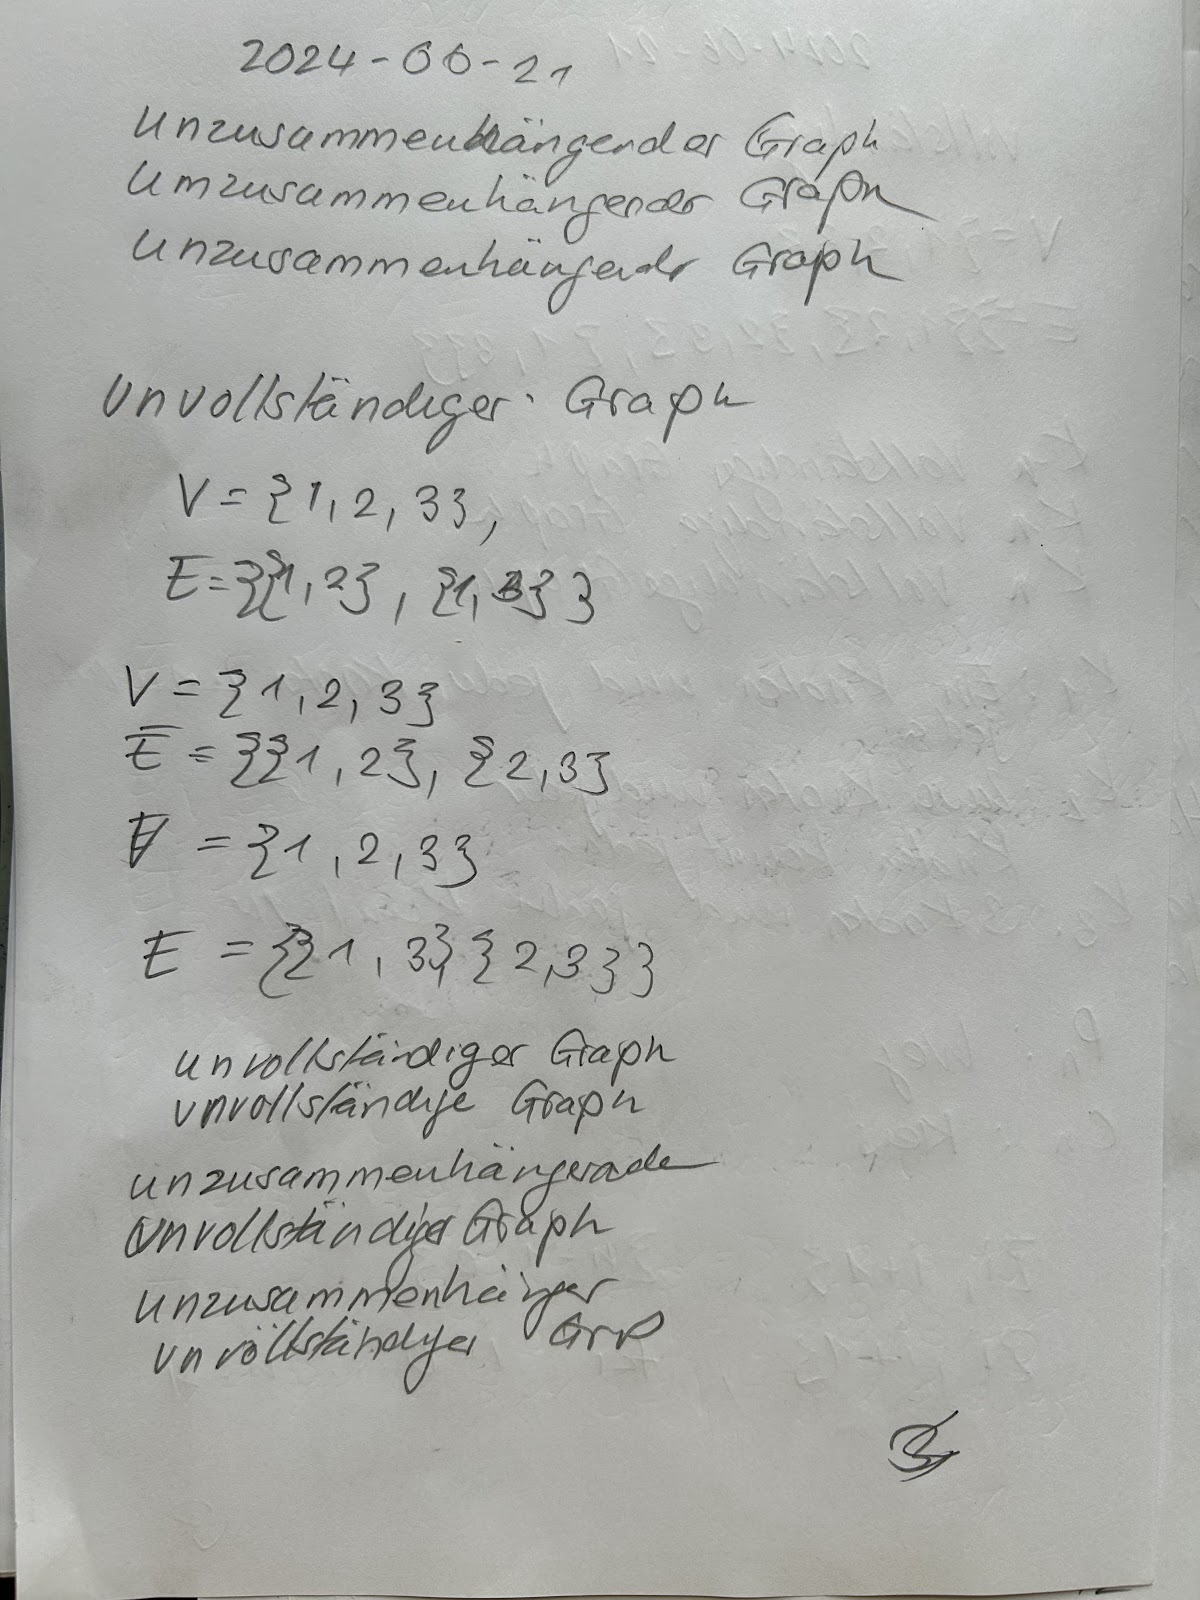 2024-06-21
Unzusammenhängender Graph
Umzusammenhängendr Graph
Unzusammenhängendr Graph
Unvollständiger Graph
V = {1, 2, 3},
E = {{1, 2}, {1, 3}}
V = {1, 2, 3}
E = {{1, 2}, {2, 3}
V = {1, 2, 3}
E = {{1, 3}, {2, 3}}
unvollständiger Graph
unvollständige Graph
unzusammenhängerade
Unvollständiger Graph
unzusammenhänger
unvöllständiger Grp